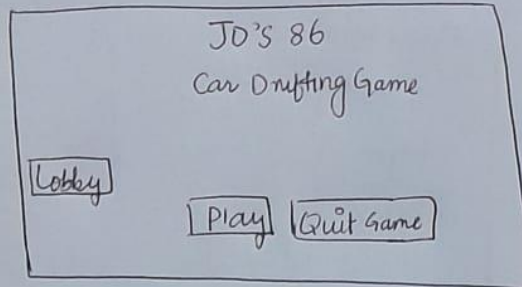 JD'S 86
Car Drifting Game
Lobby
Play
Quit Game